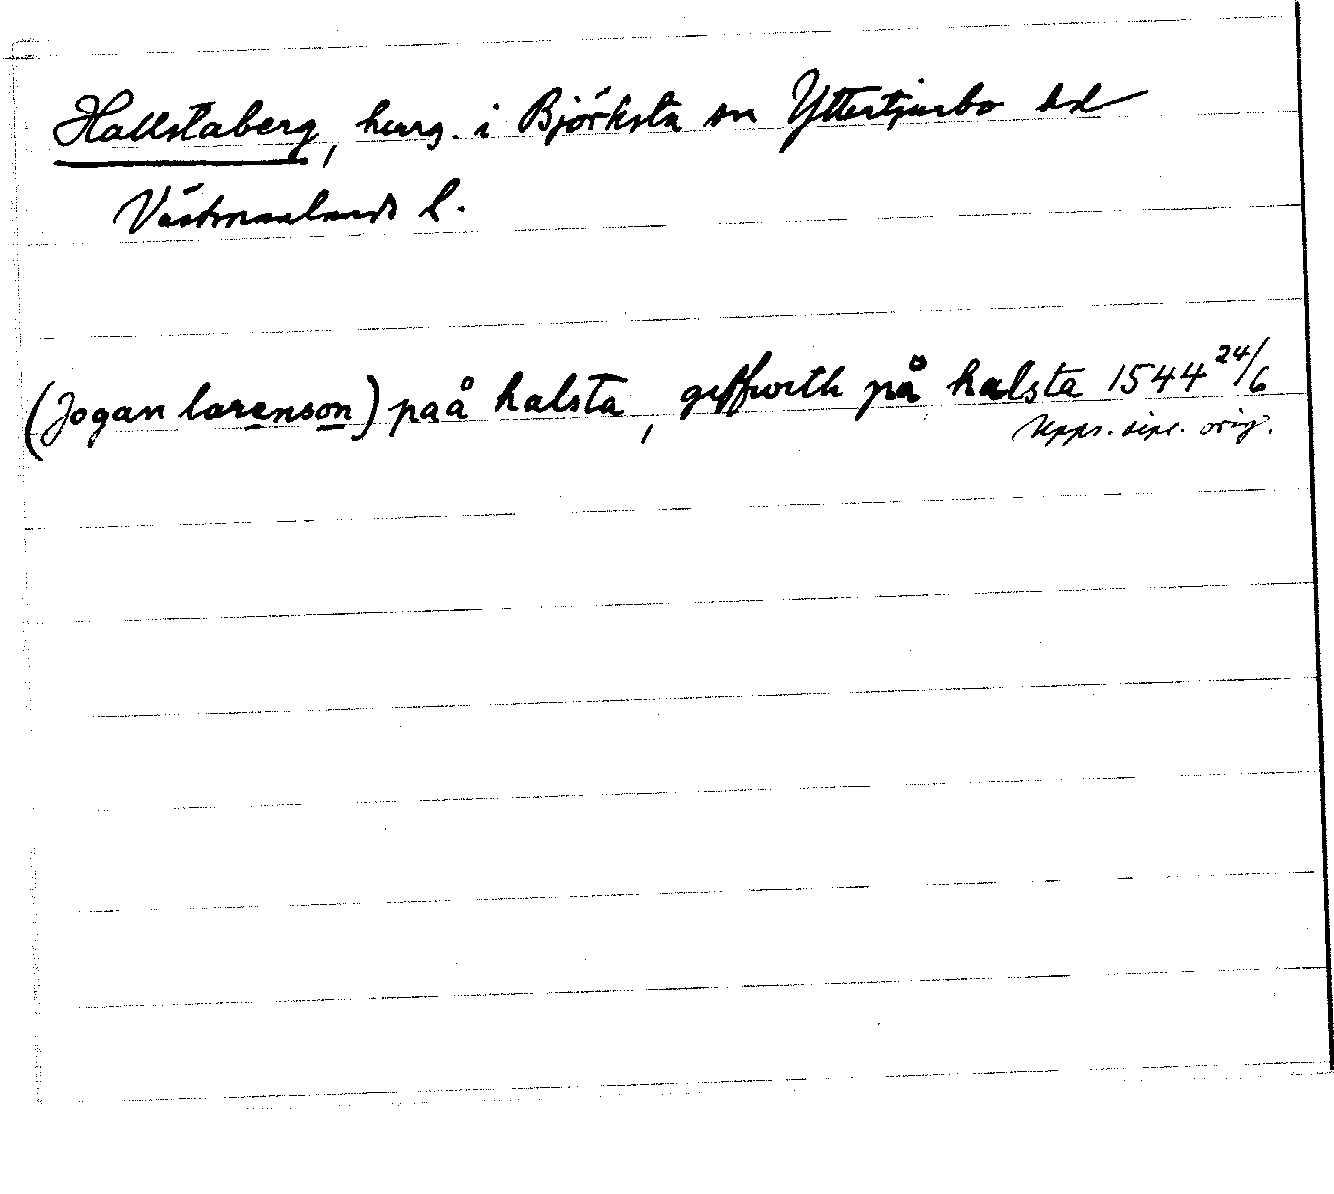 Hallstaberg, herrg. i Björksta sn Yttertjurbo hd
Västmanlands l.
(Jogan larenson) paå halsta, geffwith på halsta 1544 24/6
Upps. dipl. orig.